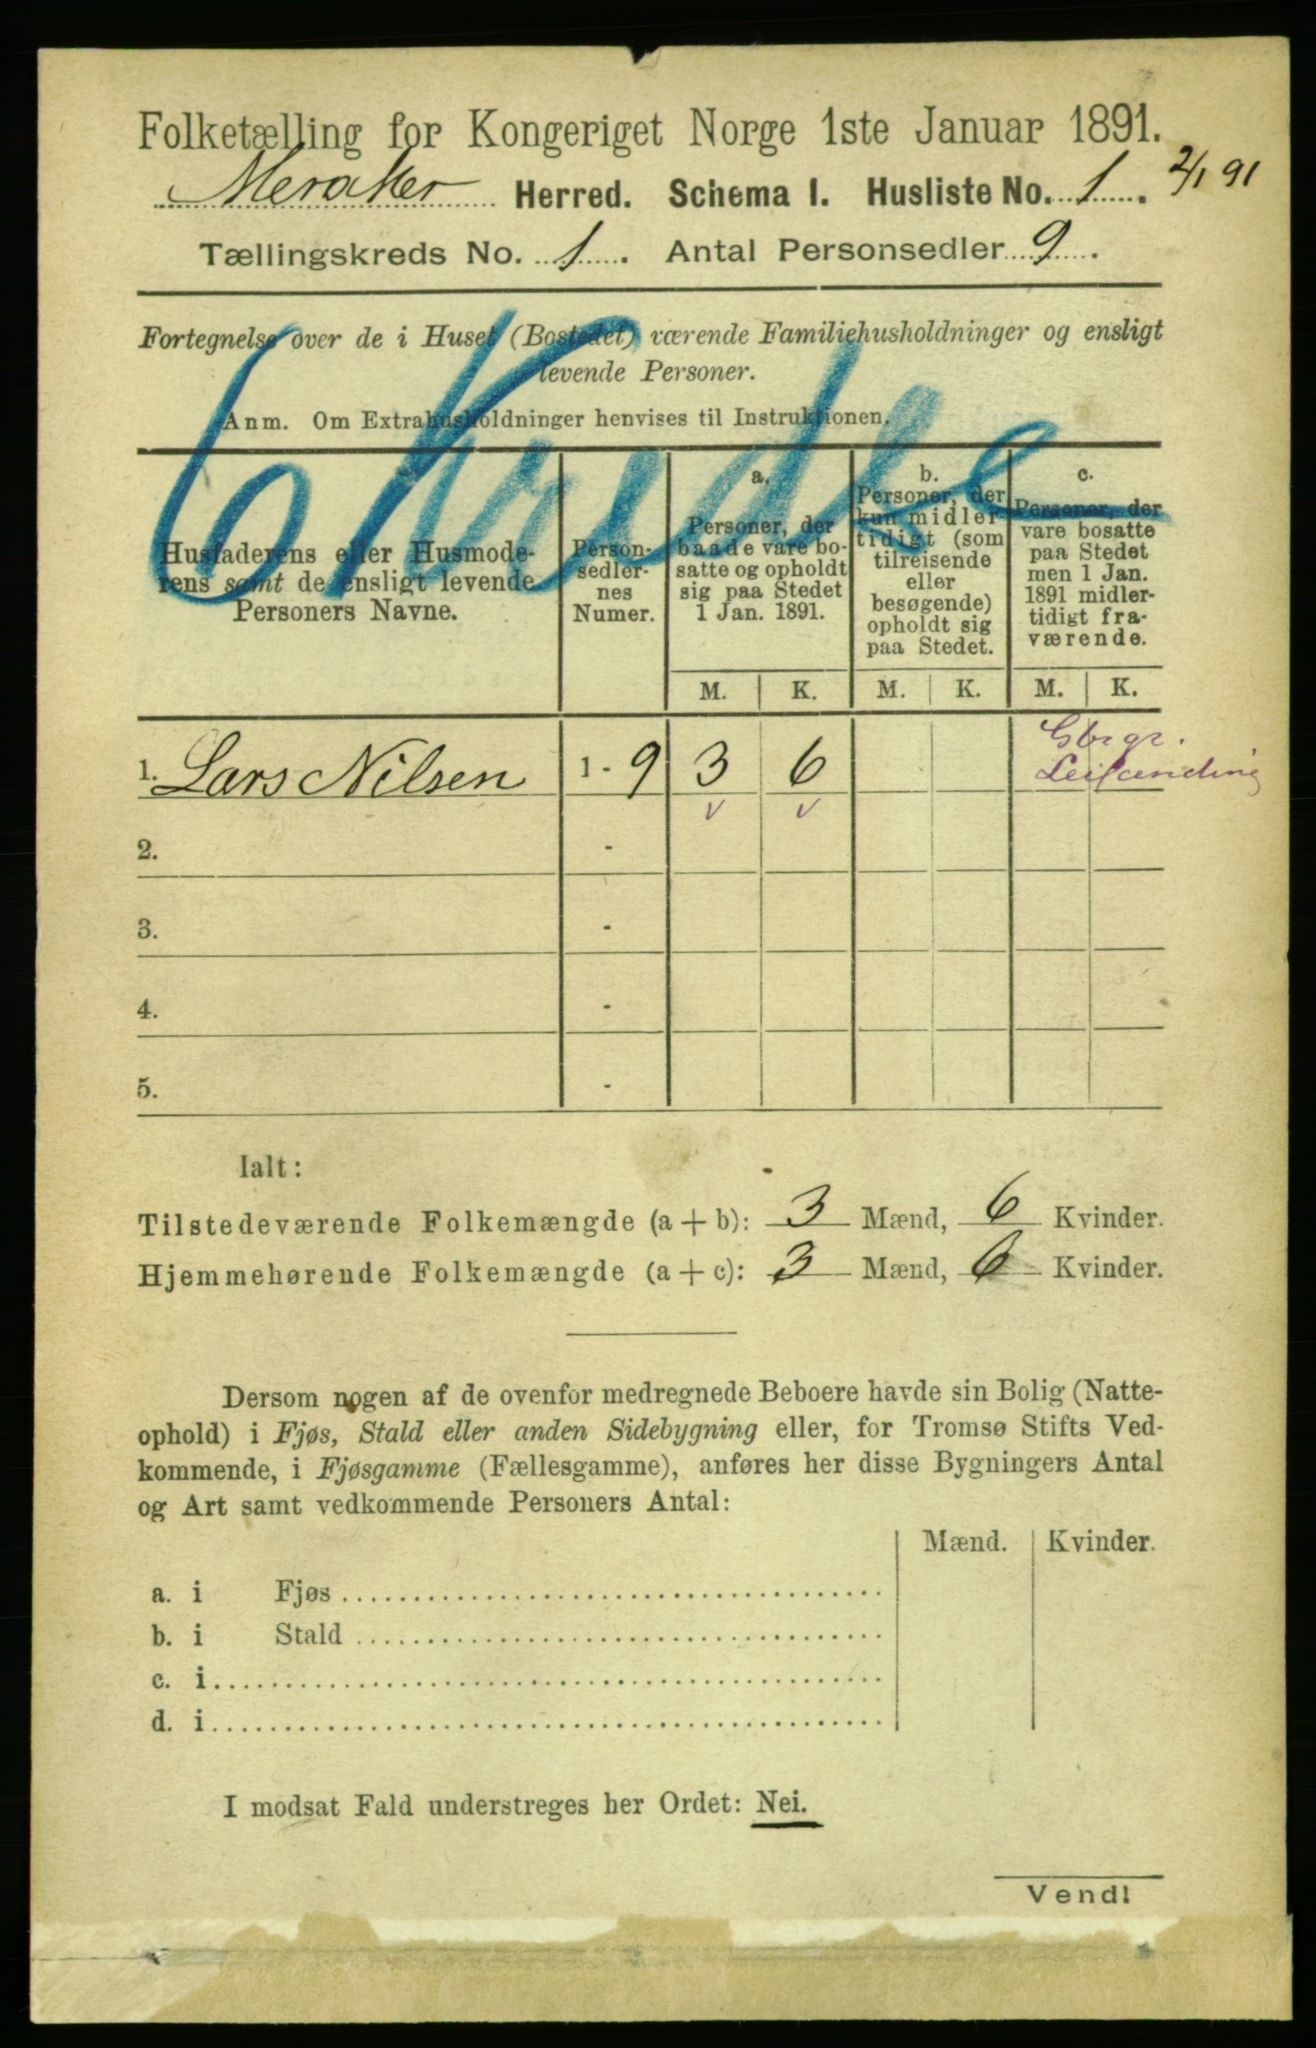 Folketælling for Kongeriget Norge 1ste Januar 1891.
Meraker Herred. Schema I. Husliste No. 1. 2/1 91
Tællingskreds No. 1. Antal Personsedler 9.
Fortegnelse over de i Huset (Bostedet) værende Familiehusholdninger og ensligt
levende Personer.
Anm. Om Extrahusholdninger henvises til Instruktionen.
Husfaderens eller Husmode-
rens samt de ensligt levende
Personers Navne.
Person-
sedler-
nes
Numer.
a.
Personer, der
baade vare bo-
satte og opholdt
sig paa Stedet
1 Jan. 1891.
b.
Personer, der
kun midler-
tidigt (som
tilreisende
eller
besøgende)
opholdt sig
paa Stedet.
c.
Personer, der
vare bosatte
paa Stedet
men 1 Jan.
1891 midler-
tidigt fra-
værende.
M. K. M. K. M. K.
1. Lars Nilsen 1 - 9 3 6
v v
2. -
3. -
4. -
5. -
Ialt:
Tilstedeværende Folkemængde (a + b): 3 Mænd, 6 Kvinder.
Hjemmehørende Folkemængde (a + c): 3 Mænd, 6 Kvinder.
Dersom nogen af de ovenfor medregnede Beboere havde sin Bolig (Natte-
ophold) i Fjøs, Stald eller anden Sidebygning eller, for Tromsø Stifts Ved-
kommende, i Fjøsgamme (Fællesgamme), anføres her disse Bygningers Antal
og Art samt vedkommende Personers Antal:
Mænd. Kvinder.
a. i Fjøs
b. i Stald
c. i
d. i
I modsat Fald understreges her Ordet: Nei.
Vend!